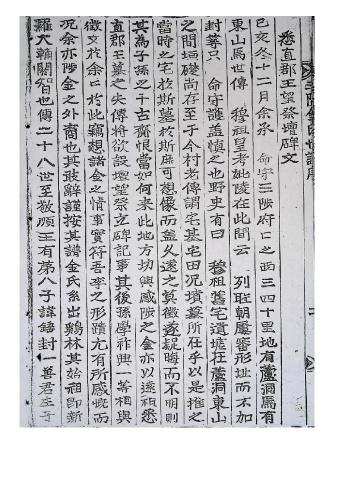 悉直郡王望祭壇碑文
己亥冬十二月余承 命守三陟府府之西三四十里地有蘆洞焉有
東山焉世傳 穆祖皇考妣陵在此間云 列聖朝屢審形址而不加
封築只 命守護盖慎之也野史有曰 穆祖舊宅遺墟在蘆洞東山
之間墟礎尚存至于今村老傳謂宅基宅田況墳墓所在乎以是推之
當時之宅於斯墓於斯庶可想像而盖久遠之莫徵遂疑晦而不明則
其為子孫之千古齎恨當如何来此地方切興感陟之金亦以遠祖悉
直郡王墓之失傳將欲設壇望祭立碑記事其後孫學祚興一等相與
徵文於余余於此竊想諸金之情事實符吾李之形蹟尤有所感慨而
況余亦陟金之外裔也其敢辭謹按其譜金氏系出鷄林其始祖即新
羅大輔閼智也傳二十八世至敬順王有第八子諱錘封一善君生子